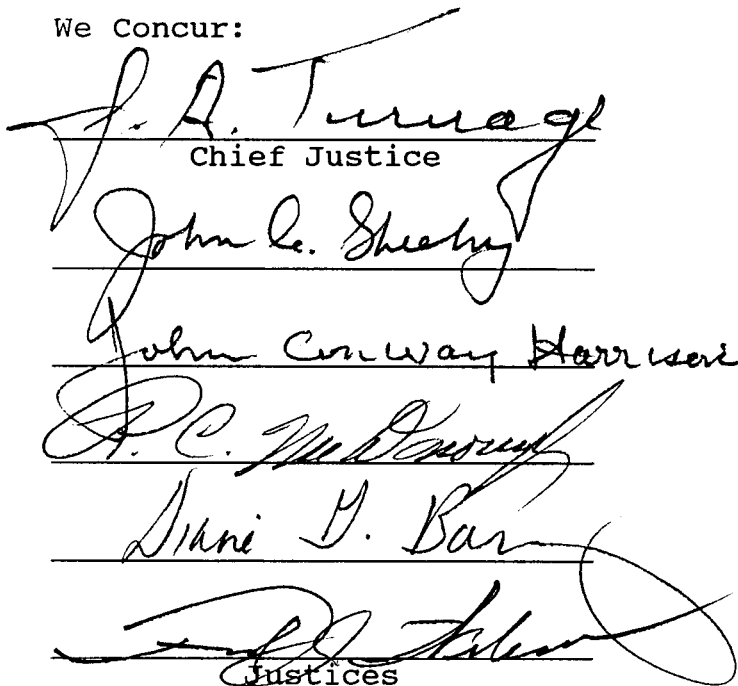 We Concur:
J. A. Turnage
Chief Justice
John C. Sheehy
John Conway Harrison
R. C. McDonough
Diane G. Barz
Justices